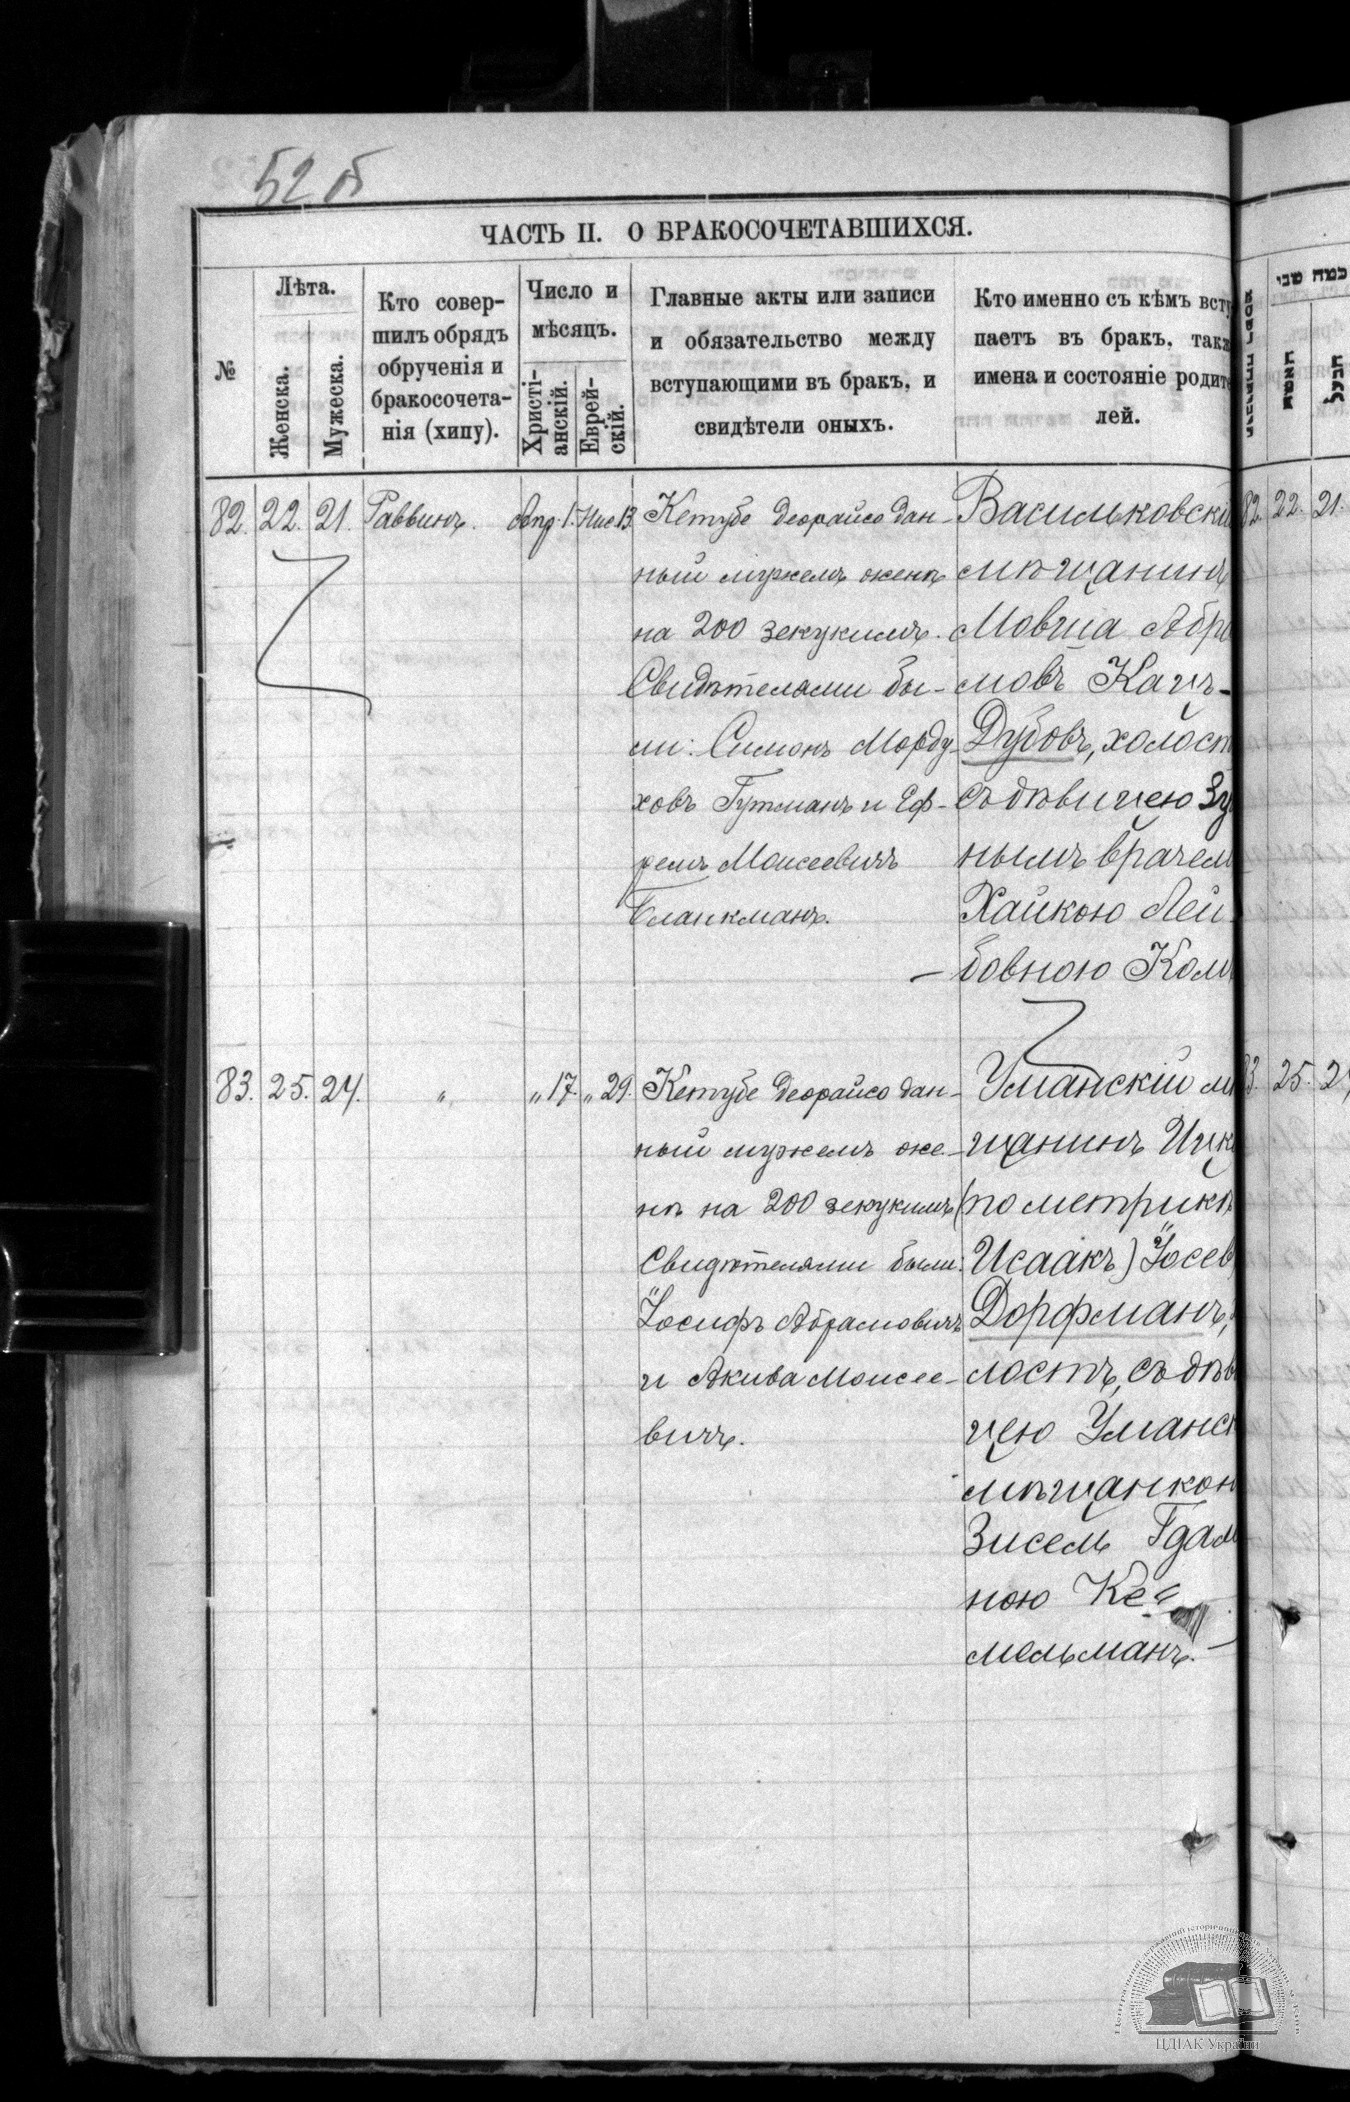 52 об
ЧАСТЬ II. О БРАКОСОЧЕТАВШИХСЯ.
№
Лѣта.
Женска.
Мужеска.
Кто совер-
шилъ обрядъ
обрученія и
бракосочета-
нія (хипу).
Число и
мѣсяцъ.
Христі-
анскій.
Еврей-
скій.
Главные акты или записи
и обязательство между
вступающими въ бракъ, и
свидѣтели оныхъ.
Кто именно съ кѣмъ всту
паетъ въ бракъ, такж
имена и состояніе родите
лей.
כמה שני
האשה
הבעל
82. 22. 21. Раввинъ. Апр. 1. Нис. 13.
Кетубе деорайсо дан-
ный мужемъ женѣ
на 200 зекукимъ.
Свидѣтелями бы-
ли: Симонъ Морду-
ховъ Гутманъ и Еф-
ремъ Моисеевичъ
Бланкманъ.
Васильковскі
мѣщанинъ
Мовша Абра
мовъ Кацъ-
Дубовъ, холост
съ дѣвицею Зу
нымъ врачем
Хайкою Лей-
бовною Ком
82. 22. 21.
83. 25. 24. " " 17. " 29.
Кетубе деорайсо дан-
ный мужемъ же-
нѣ на 200 зекукимъ
Свидѣтелями были:
Іосифъ Абрамовичъ
и Акива Моисее-
вичъ.
Уманскій мѣ
щанинъ Ицк
(по метрикѣ
Исаакъ) Іосев
Дорфманъ,
лостъ, съ дѣв
цею Уманск
мѣщанкою
Зисель Гдал
ною Ке-
мельманъ.
83. 25. 24
ЦДІАК України